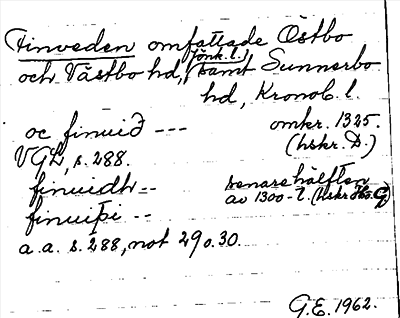 Finveden omfattade Östbo
och Västbo hd, (Jönk. l.) samt Sunnerbo
hd, Kronob. l.
oc finuið --- omkr. 1325.
VGL, s. 288. (hskr. D.)
finuidh -- senare hälften
finuiþi -- av 1300-t. (hskr. G)
a.a. s. 288, not 29 o. 30.
G.E. 1962.